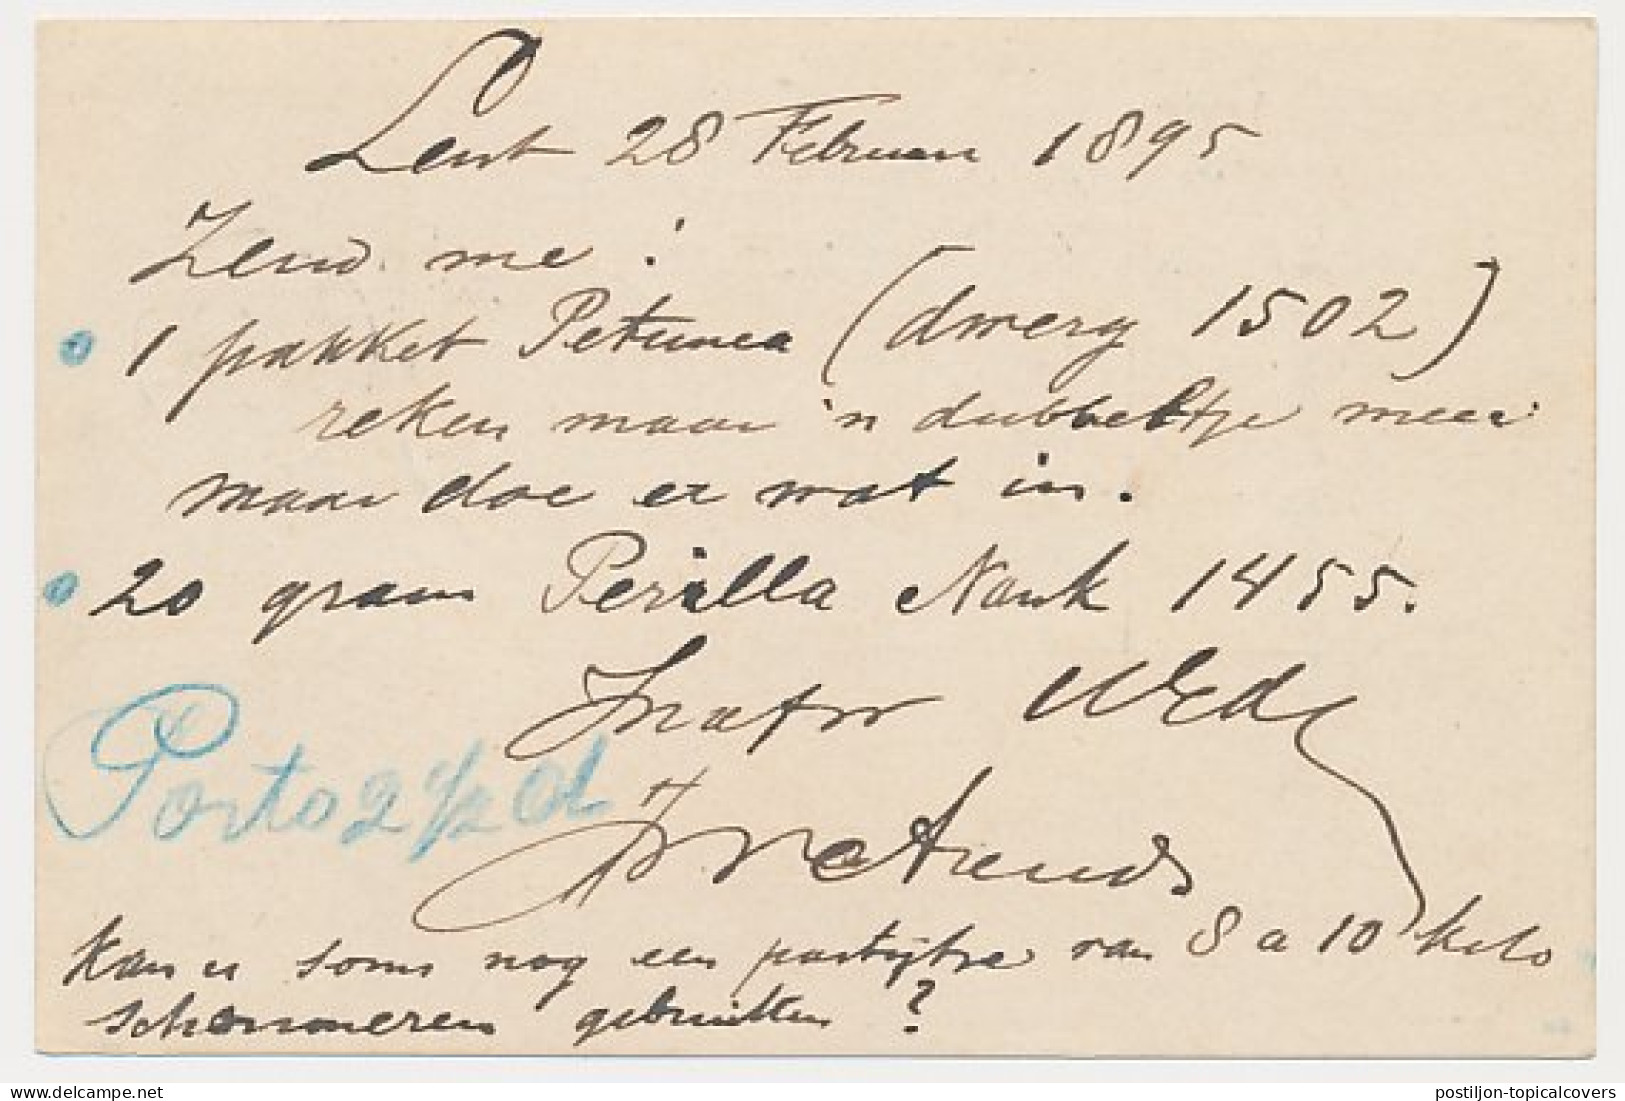 Lent 28 Februari 1895
Zend me :
1 pakket Petunea (dwerg 1502)
reken maar 'n dubbeltje meer
maar doe er wat in.
20 gram Perilla Nank 1455.
UEd
Porto 2 1/2 ct
Arends
Kan u soms nog een partijtje van 8 a 10 kilo
schorseneren gebruiken ?
postiljon-topicalcovers